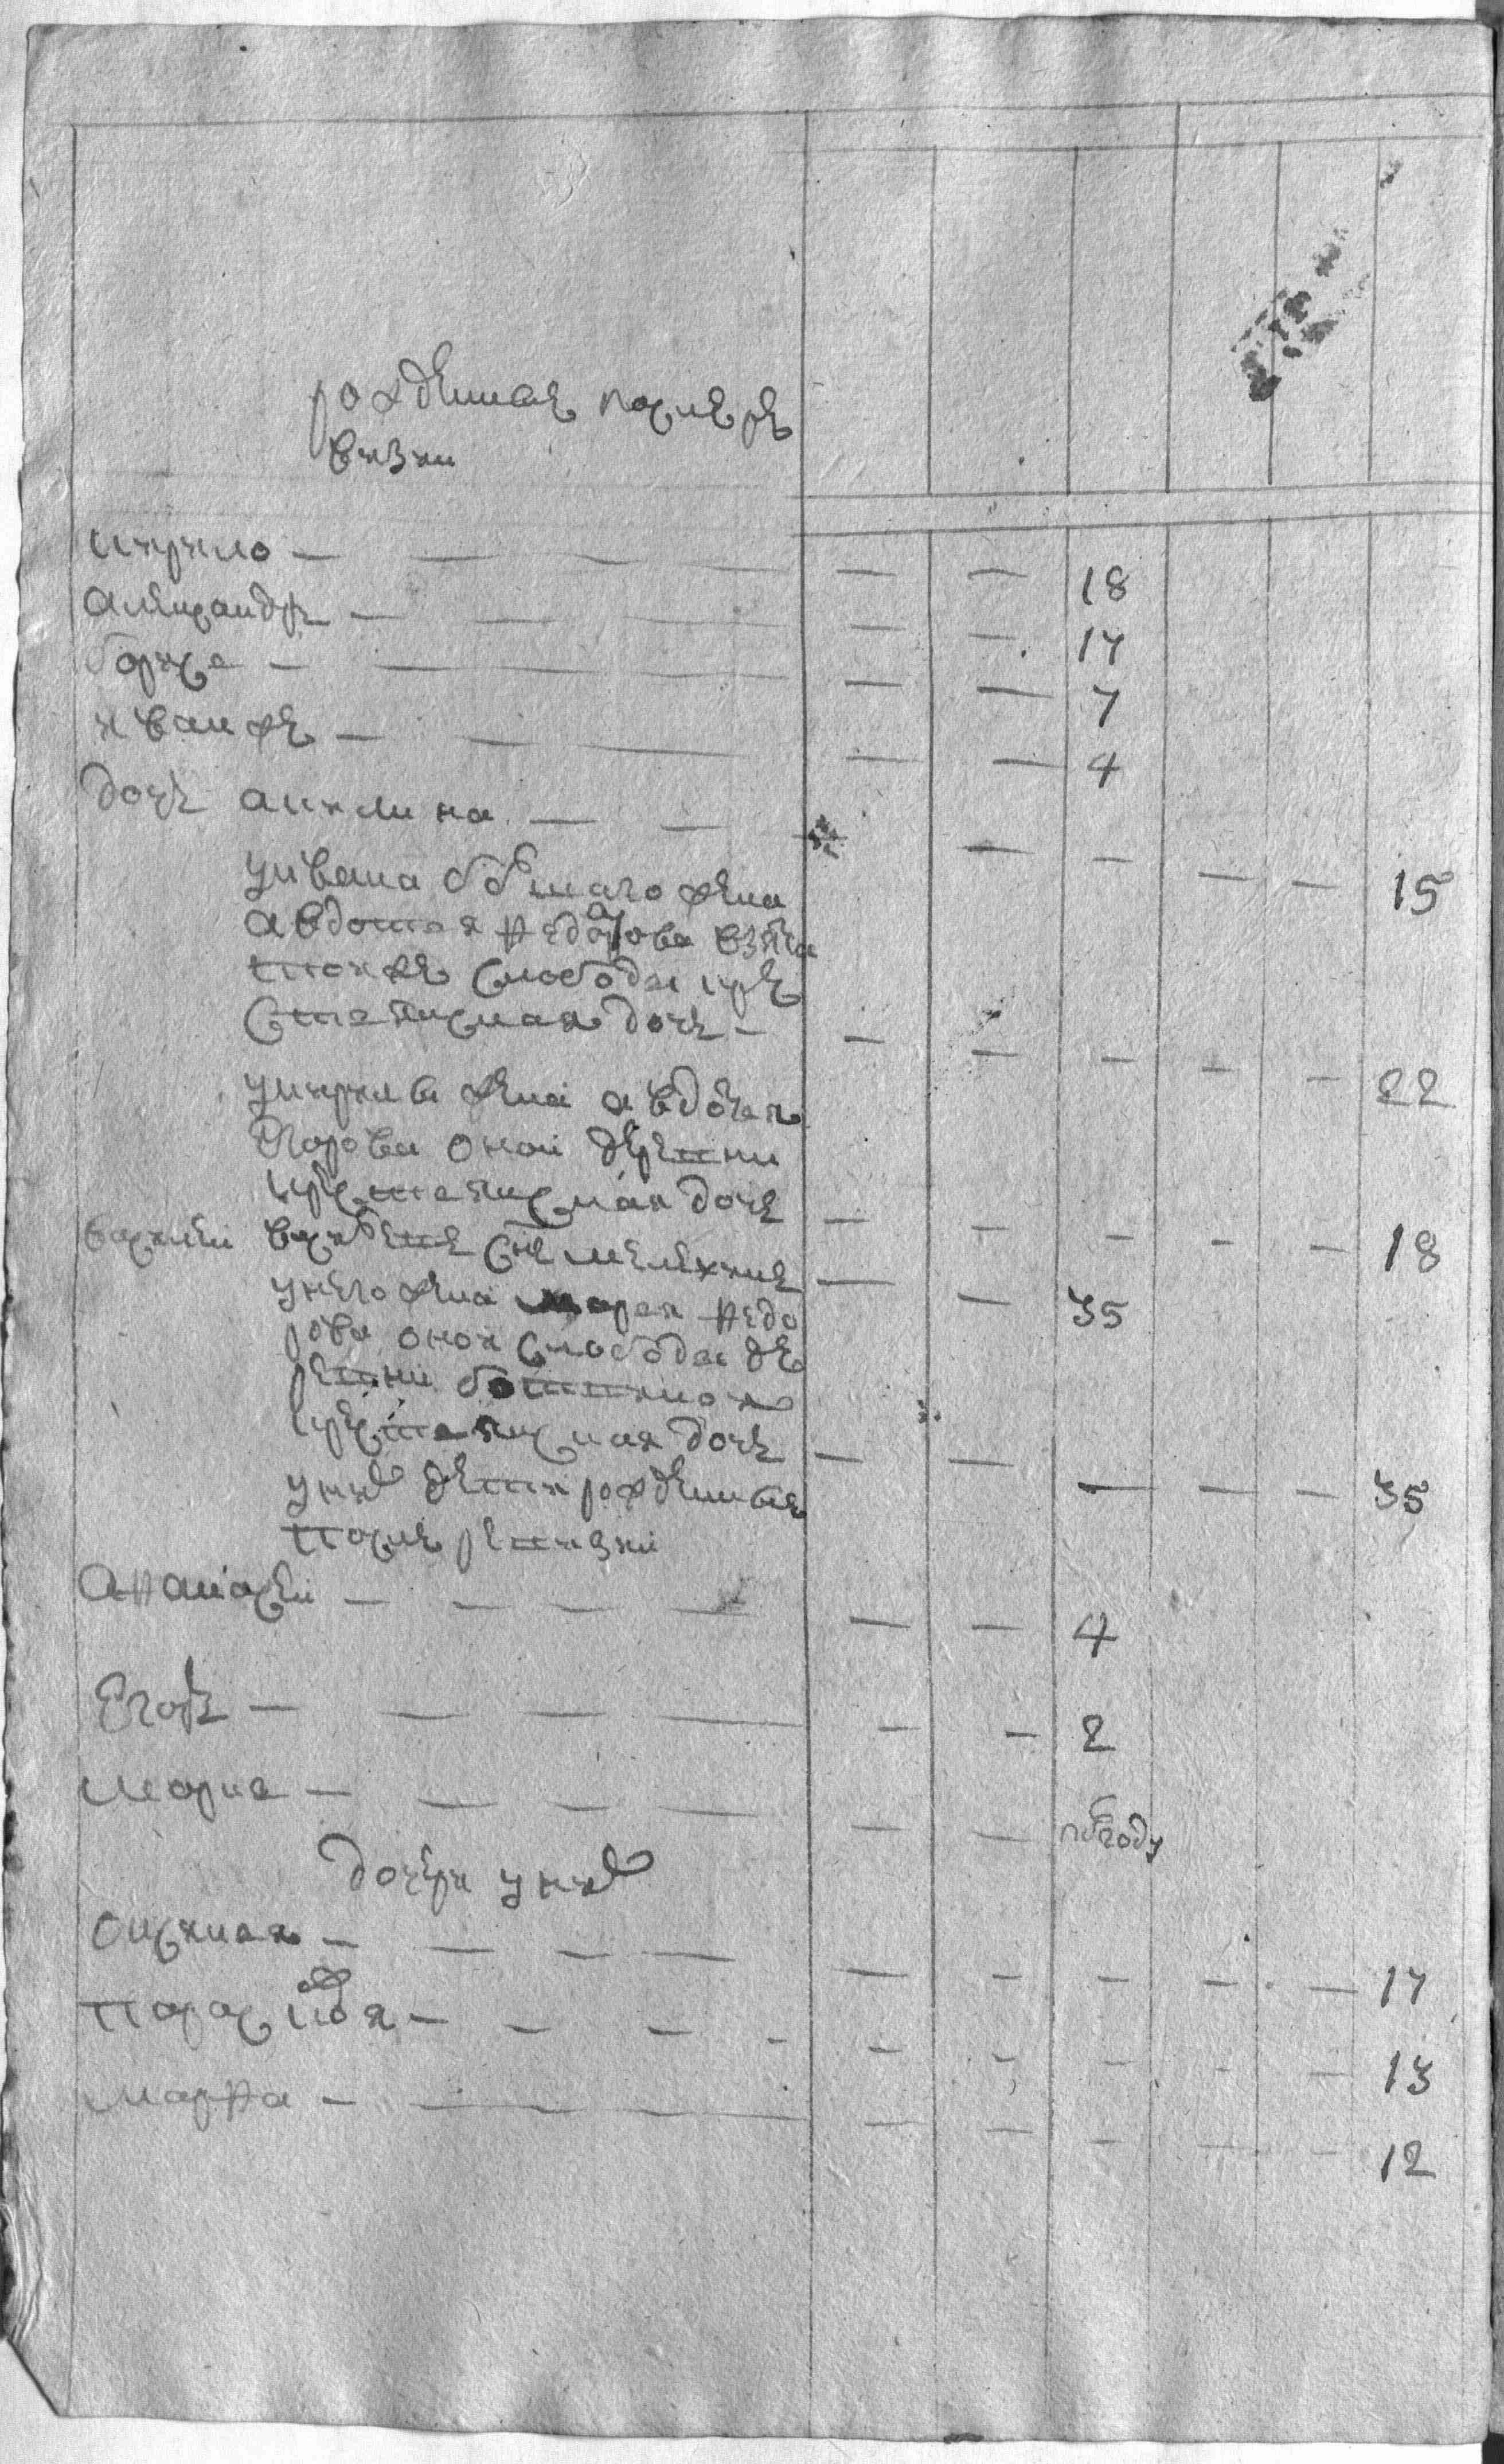 рожденныя после ре
визии
кирило — — — — — — 18
александръ — — — — — — 17
борисъ — — — — — 7
иванжъ — — — — — 4
дочь акилина — — — — — — 15
у ивана большаго жена
авдотья федорова взята
тоижъ слободы кре
стьянская дочь — — — — — — 22
у кирилы жена авдотья
егорова оной деревни
крестьянская дочь — — — — — 18
василей васильевъ снъ мелехинъ — — 35
у него жена марья федо
рова оной слободы де
ревни
крестьянская дочь — — — — — 35
у них дети рожденныя
после ревизии
афанасей — — — — — — 4
егоръ — — — — — — 2
марка — — — — — — полгоду
дочери у них
оксинья — — — — — — — — — 17
парасковья — — — — — — — — — 13
марфа — — — — — — — — — 12